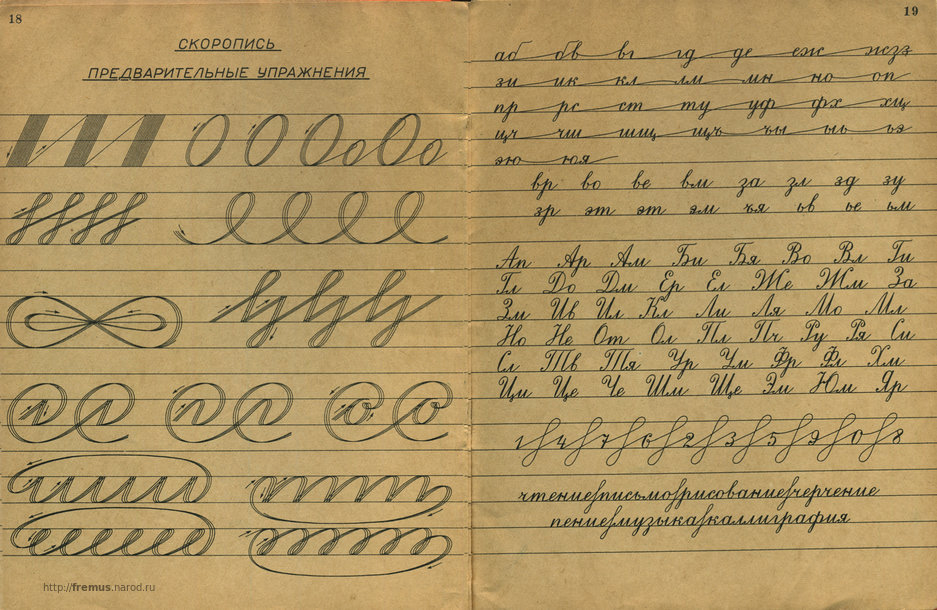 18
СКОРОПИСЬ
ПРЕДВАРИТЕЛЬНЫЕ УПРАЖНЕНИЯ
http://fremus.narod.ru
19
аб бв вг гд де еж жзз
зи ик кл лм мн но оп
пр рс ст ту уф фх хц
цч чш шщ щъ ъы ыь ьэ
эю юя
вр во ве вм за зл зд зу
зр эт эт эм ья ьв ье ьм
Ап Ар Ам Би Бя Во Вл Ги
Гл До Дм Ер Ел Же Жм За
Зм Ив Ил Кл Ли Ля Мо Мл
Но Не От Ол Пл Пч Ру Ря Си
Сл Тв Тя Ур Ум Фр Фл Хм
Цм Це Че Шм Ще Эм Юм Яр
1 4 7 6 2 3 5 9 0 8
чтение письмо рисование черчение
пение музыка каллиграфия